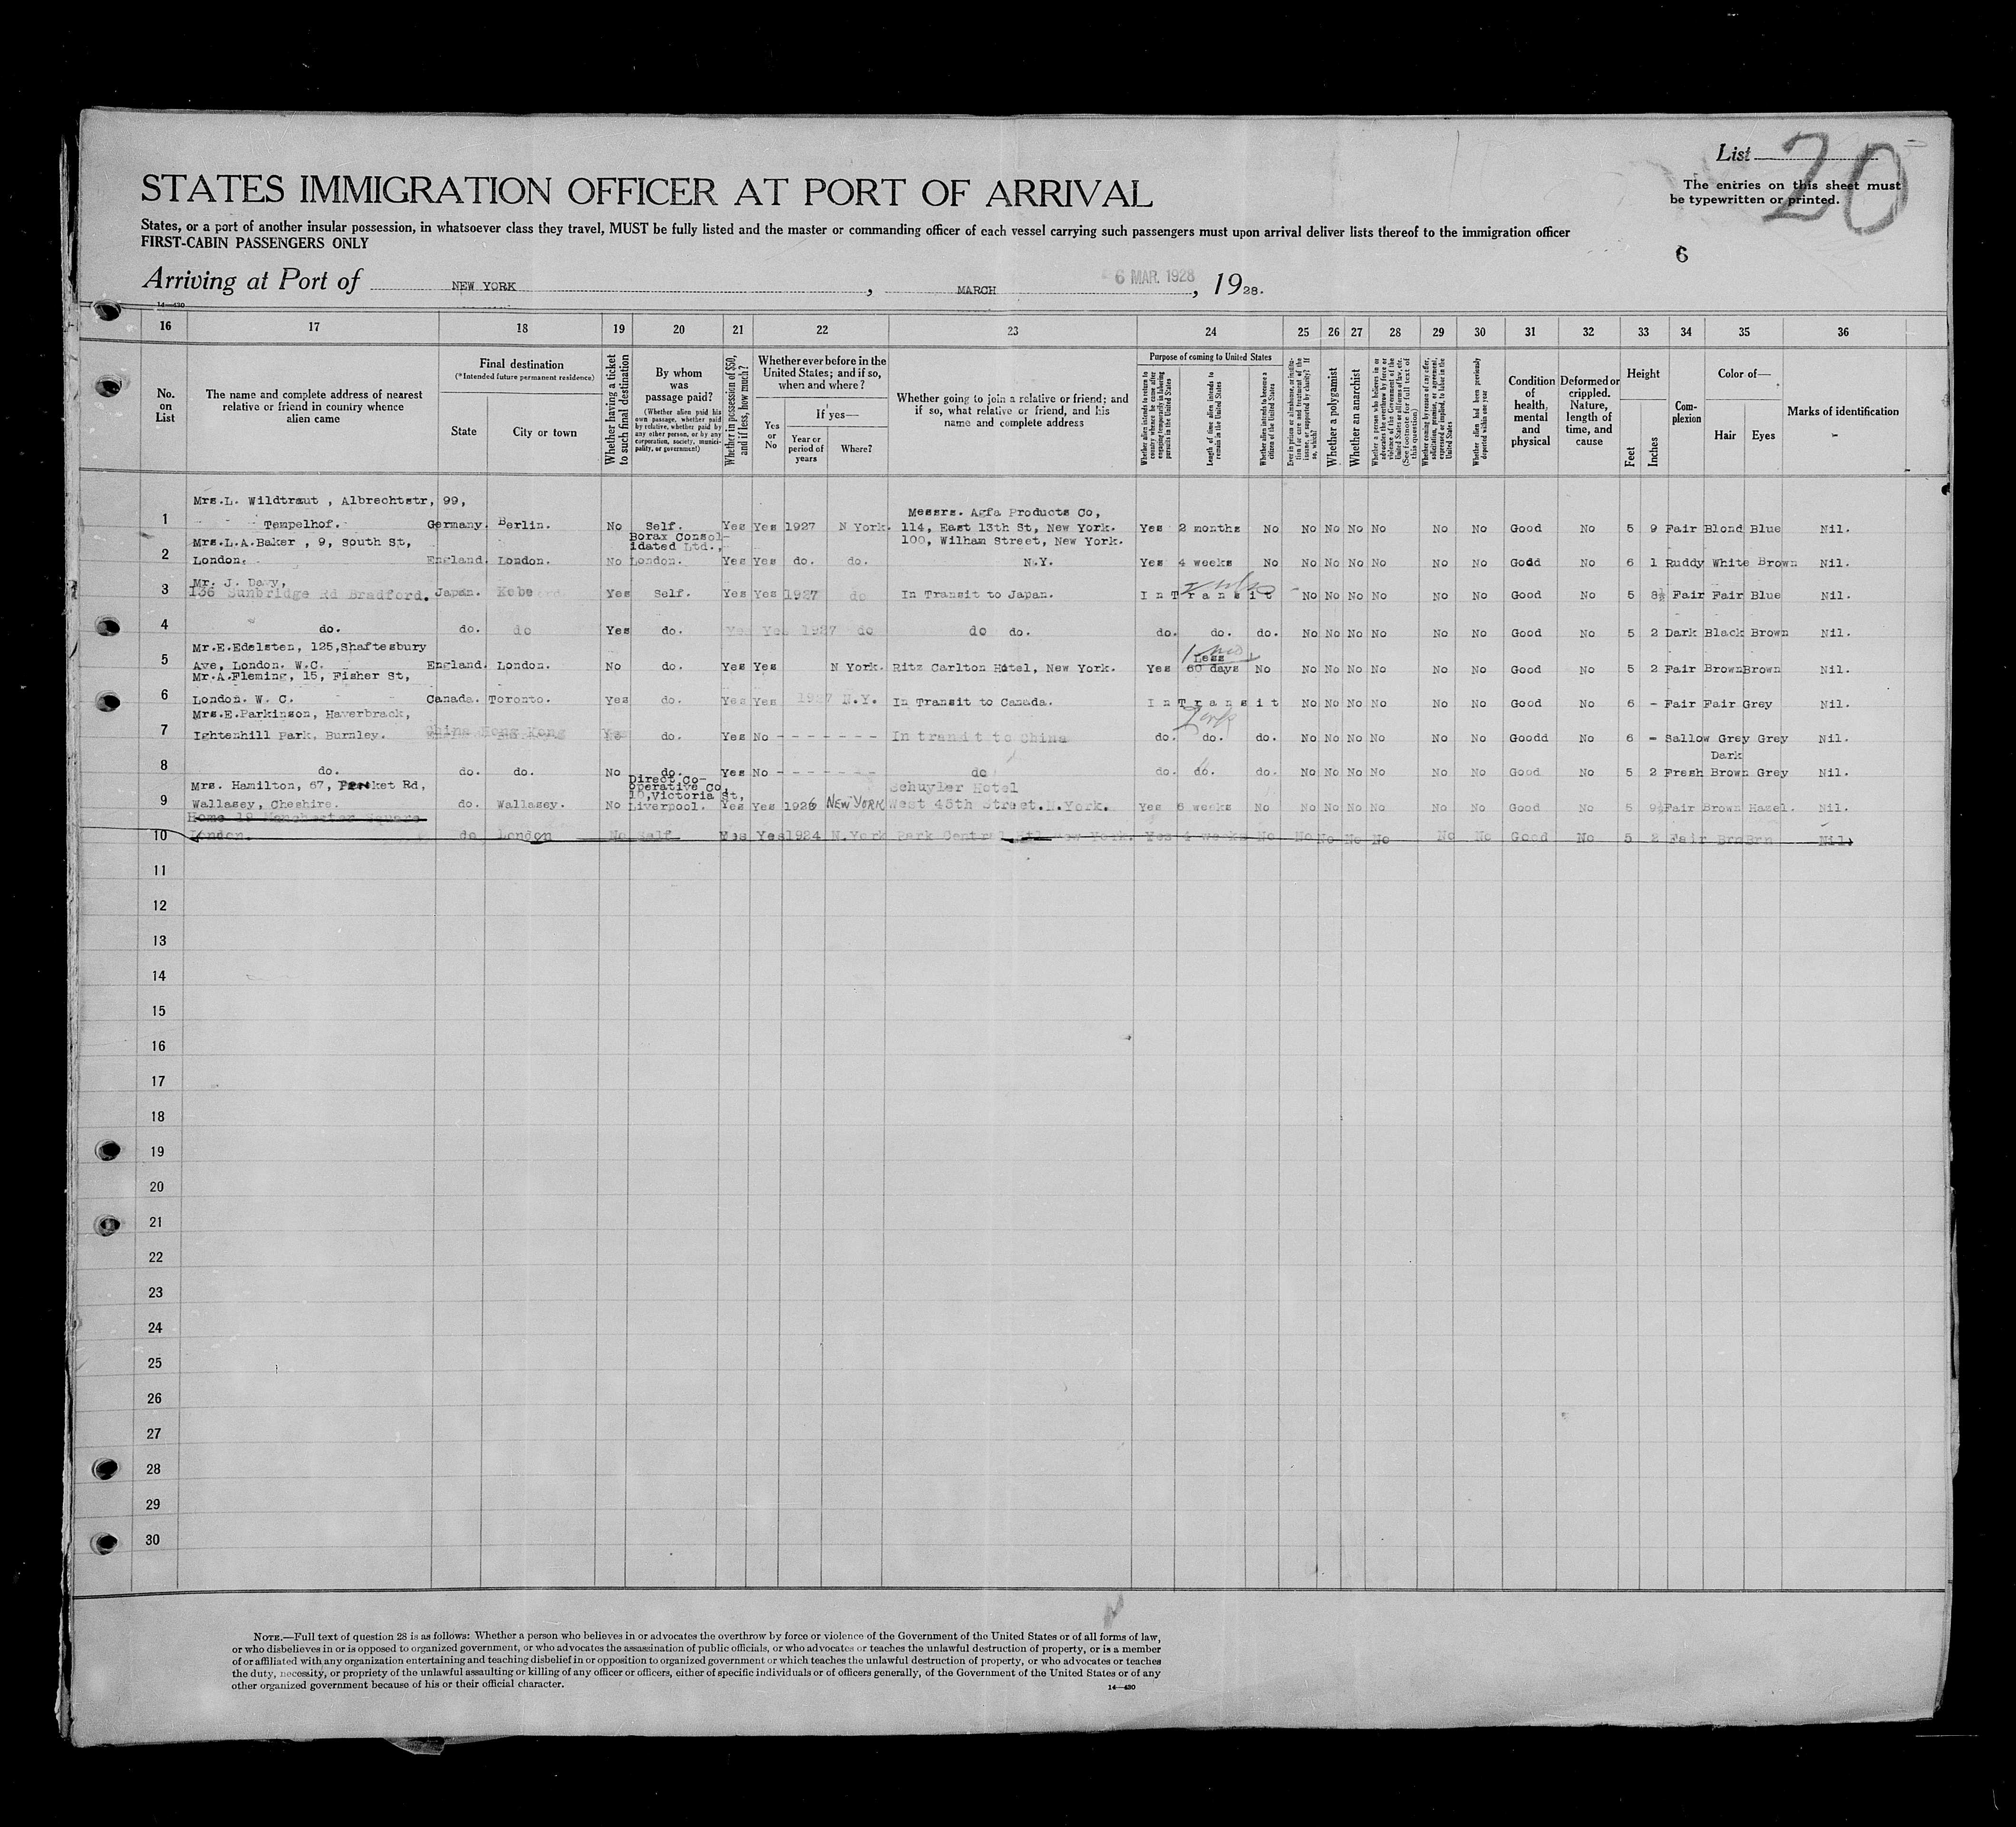 List 20
The entries on this sheet must
be typewritten or printed.
STATES IMMIGRATION OFFICER AT PORT OF ARRIVAL
States, or a port of another insular possession, in whatsoever class they travel, MUST be fully listed and the master or commanding officer of each vessel carrying such passengers must upon arrival deliver lists thereof to the immigration officer
FIRST-CABIN PASSENGERS ONLY
6
Arriving at Port of NEW YORK, MARCH 6 MAR. 1928, 1928.
14—430
16 17 18 19 20 21 22 23 24 25 26 27 28 29 30 31 32 33 34 35 36
No. on List
The name and complete address of nearest relative or friend in country whence alien came
Final destination (*Intended future permanent residence)
State
City or town
Whether having a ticket to such final destination
By whom was passage paid?
(Whether alien paid his own passage, whether paid by relative, whether paid by any other person, or by any corporation, society, municipality, or government)
Whether in possession of $50, and if less, how much?
Whether ever before in the United States; and if so, when and where?
Yes or No
If yes—
Year or period of years
Where?
Whether going to join a relative or friend; and if so, what relative or friend, and his name and complete address
Purpose of coming to United States
Whether alien intends to return to country whence he came after engaging temporarily in laboring pursuits in the United States
Length of time alien intends to remain in the United States
Whether alien intends to become a citizen of the United States
Ever in prison or almshouse, or institution for care and treatment of the insane, or supported by charity? If so, which?
Whether a polygamist
Whether an anarchist
Whether a person who believes in or advocates the overthrow by force or violence of the Government of the United States or all forms of law, etc. (See footnote for full text of this question)
Whether coming by reason of any offer, solicitation, promise, or agreement, expressed or implied, to labor in the United States
Whether alien had been previously deported within one year
Condition of health, mental and physical
Deformed or crippled. Nature, length of time, and cause
Height
Feet
Inches
Complexion
Color of—
Hair Eyes
Marks of identification
Mrs.L. Wildtraut , Albrechtstr, 99,
Messrs. Agfa Products Co,
1 Tempelhof. Germany. Berlin. No Self. Yes Yes 1927 N York. 114, East 13th St, New York. Yes 2 months No No No No No No No Good No 5 9 Fair Blond Blue Nil.
Mrs.L.A.Baker , 9, South St, Borax Consol-
idated Ltd., 100, Wilham Street, New York.
2 London. England. London. No London. Yes Yes do. do. N.Y. Yes 4 weeks No No No No No No No Godd No 6 1 Ruddy White Brown Nil.
Mr. J. Davy,
3 136 Sunbridge Rd Bradford. Japan. Kobe Yes Self. Yes Yes 1927 do In Transit to Japan. In Transit No No No No No No Good No 5 8½ Fair Fair Blue Nil.
4 do. do. do Yes do. Yes Yes 1927 do do do. do. do. do. No No No No No No Good No 5 2 Dark Black Brown Nil.
Mr.E.Edelsten, 125,Shaftesbury
Less
5 Ave, London. W.C. England. London. No do. Yes Yes N York. Ritz Carlton Hotel, New York. Yes 60 days No No No No No No No Good No 5 2 Fair Brown Brown Nil.
Mr.A.Fleming, 15, Fisher St,
6 London. W. C. Canada. Toronto. Yes do. Yes Yes 1927 N.Y. In Transit to Canada. In Transit No No No No No No Good No 6 - Fair Fair Grey Nil.
Mrs.E.Parkinson, Haverbrack,
7 Ightenhill Park, Burnley. China Hong Kong Yes do. Yes No - - - - - - - In transit to China do. do. do. No No No No No No Goodd No 6 - Sallow Grey Grey Nil.
Dark
8 do. do. do. No do. Yes No - - - - - - - do do. do. do. No No No No No No Good No 5 2 Fresh Brown Grey Nil.
Mrs. Hamilton, 67, ket Rd, Direct Co-
operative Co,
10,Victoria St, Schuyler Hotel
9 Wallasey, Cheshire. do. Wallasey. No Liverpool. Yes Yes 1926 NEW YORK West 45th Street.N.York. Yes 6 weeks No No No No No No No Good No 5 9½ Fair Brown Hazel. Nil.
Home 19 Manchester Square
10 London. do London No Self Yes Yes 1924 N.York Park Central Htl New York. Yes 4 weeks No No No No No No No Good No 5 2 Fair Brn Brn Nil.
11
12
13
14
15
16
17
18
19
20
21
22
23
24
25
26
27
28
29
30
NOTE.—Full text of question 28 is as follows: Whether a person who believes in or advocates the overthrow by force or violence of the Government of the United States or of all forms of law,
or who disbelieves in or is opposed to organized government, or who advocates the assassination of public officials, or who advocates or teaches the unlawful destruction of property, or is a member
of or affiliated with any organization entertaining and teaching disbelief in or opposition to organized government or which teaches the unlawful destruction of property, or who advocates or teaches
the duty, necessity, or propriety of the unlawful assaulting or killing of any officer or officers, either of specific individuals or of officers generally, of the Government of the United States or of any
other organized government because of his or their official character.
14—430